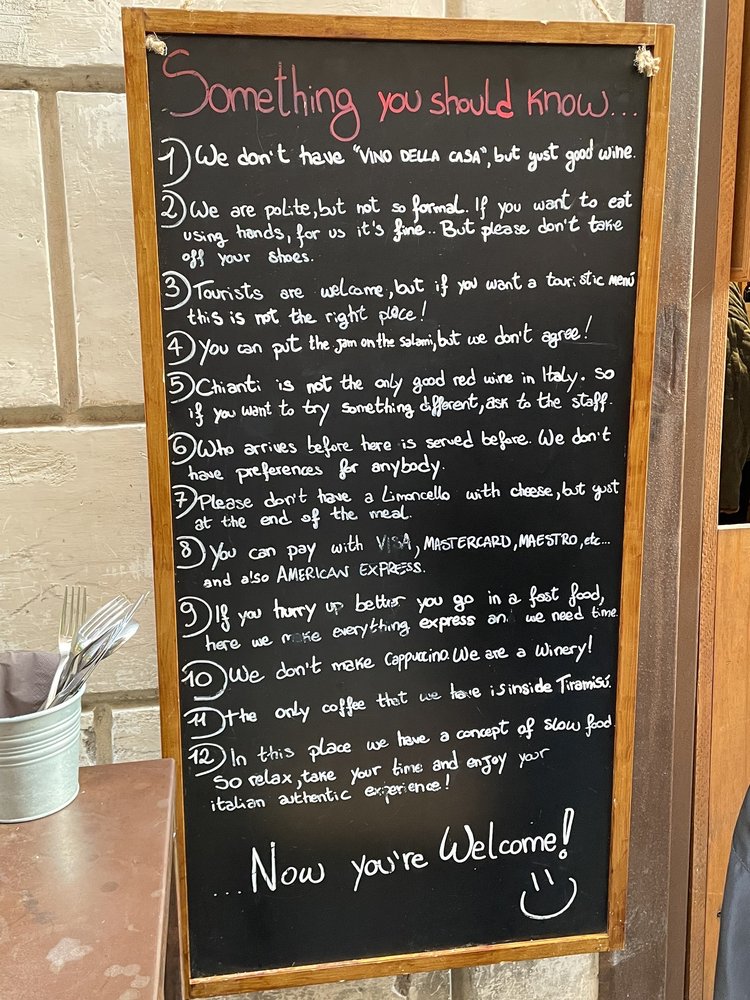 Something you should know...
1) We don't have "VINO DELLA CASA", but yust good wine.
2) We are polite, but not so formal. If you want to eat
using hands, for us it's fine.. But please don't take
off your shoes.
3) Tourists are welcome, but if you want a touristic menú
this is not the right place!
4) You can put the jam on the salami, but we don't agree!
5) Chianti is not the only good red wine in Italy. So
if you want to try something different, ask to the staff.
6) Who arrives before here is served before. We don't
have preferences for anybody.
7) Please don't have a Limoncello with cheese, but yust
at the end of the meal.
8) You can pay with VISA, MASTERCARD, MAESTRO, etc...
and also AMERICAN EXPRESS.
9) If you hurry up better you go in a fast food,
here we make everything express and we need time.
10) We don't make Cappuccino. We are a Winery!
11) the only coffee that we have is inside Tiramisú.
12) In this place we have a concept of slow food.
So relax, take your time and enjoy your
italian authentic experience!
...Now you're Welcome!